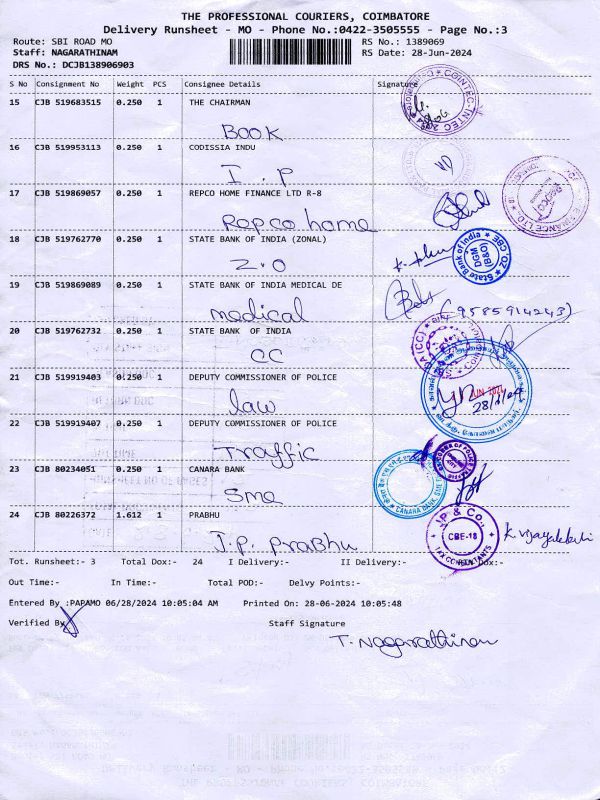 THE PROFESSIONAL COURIERS, COIMBATORE
Delivery Runsheet - MO - Phone No.:0422-3505555 - Page No.:3
Route: SBI ROAD MO
RS No.: 1389069
Staff: NAGARATHINAM
RS Date: 28-Jun-2024
DRS No.: DCJB138906903
S No Consignment No Weight PCS Consignee Details Signature
15 CJB 519683515 0.250 1 THE CHAIRMAN
Book
16 CJB 519953113 0.250 1 CODISSIA INDU
I.P
17 CJB 519869057 0.250 1 REPCO HOME FINANCE LTD R-8
Repco home
18 CJB 519762770 0.250 1 STATE BANK OF INDIA (ZONAL)
Z.O
State Bank of India
DGM
(B&O)
ZO, CBE
19 CJB 519869089 0.250 1 STATE BANK OF INDIA MEDICAL DE
medical
(9585914243)
20 CJB 519762732 0.250 1 STATE BANK OF INDIA
CC
21 CJB 519919403 0.250 1 DEPUTY COMMISSIONER OF POLICE
law
JUN 2024
28/6/24
22 CJB 519919407 0.250 1 DEPUTY COMMISSIONER OF POLICE
Traffic
23 CJB 80234051 0.250 1 CANARA BANK
Sme
CANARA BANK, SME
24 CJB 80226372 1.612 1 PRABHU
J.P. Prabhu
J.P. & Co.,
CBE-18
TAX CONSULTANTS
Tot. Runsheet:- 3 Total Dox:- 24 I Delivery:- II Delivery:- Dox:-
Out Time:- In Time:- Total POD:- Delvy Points:-
Entered By :PAPAMO 06/28/2024 10:05:04 AM Printed On: 28-06-2024 10:05:48
Verified By
Staff Signature
T. Nagarathinam